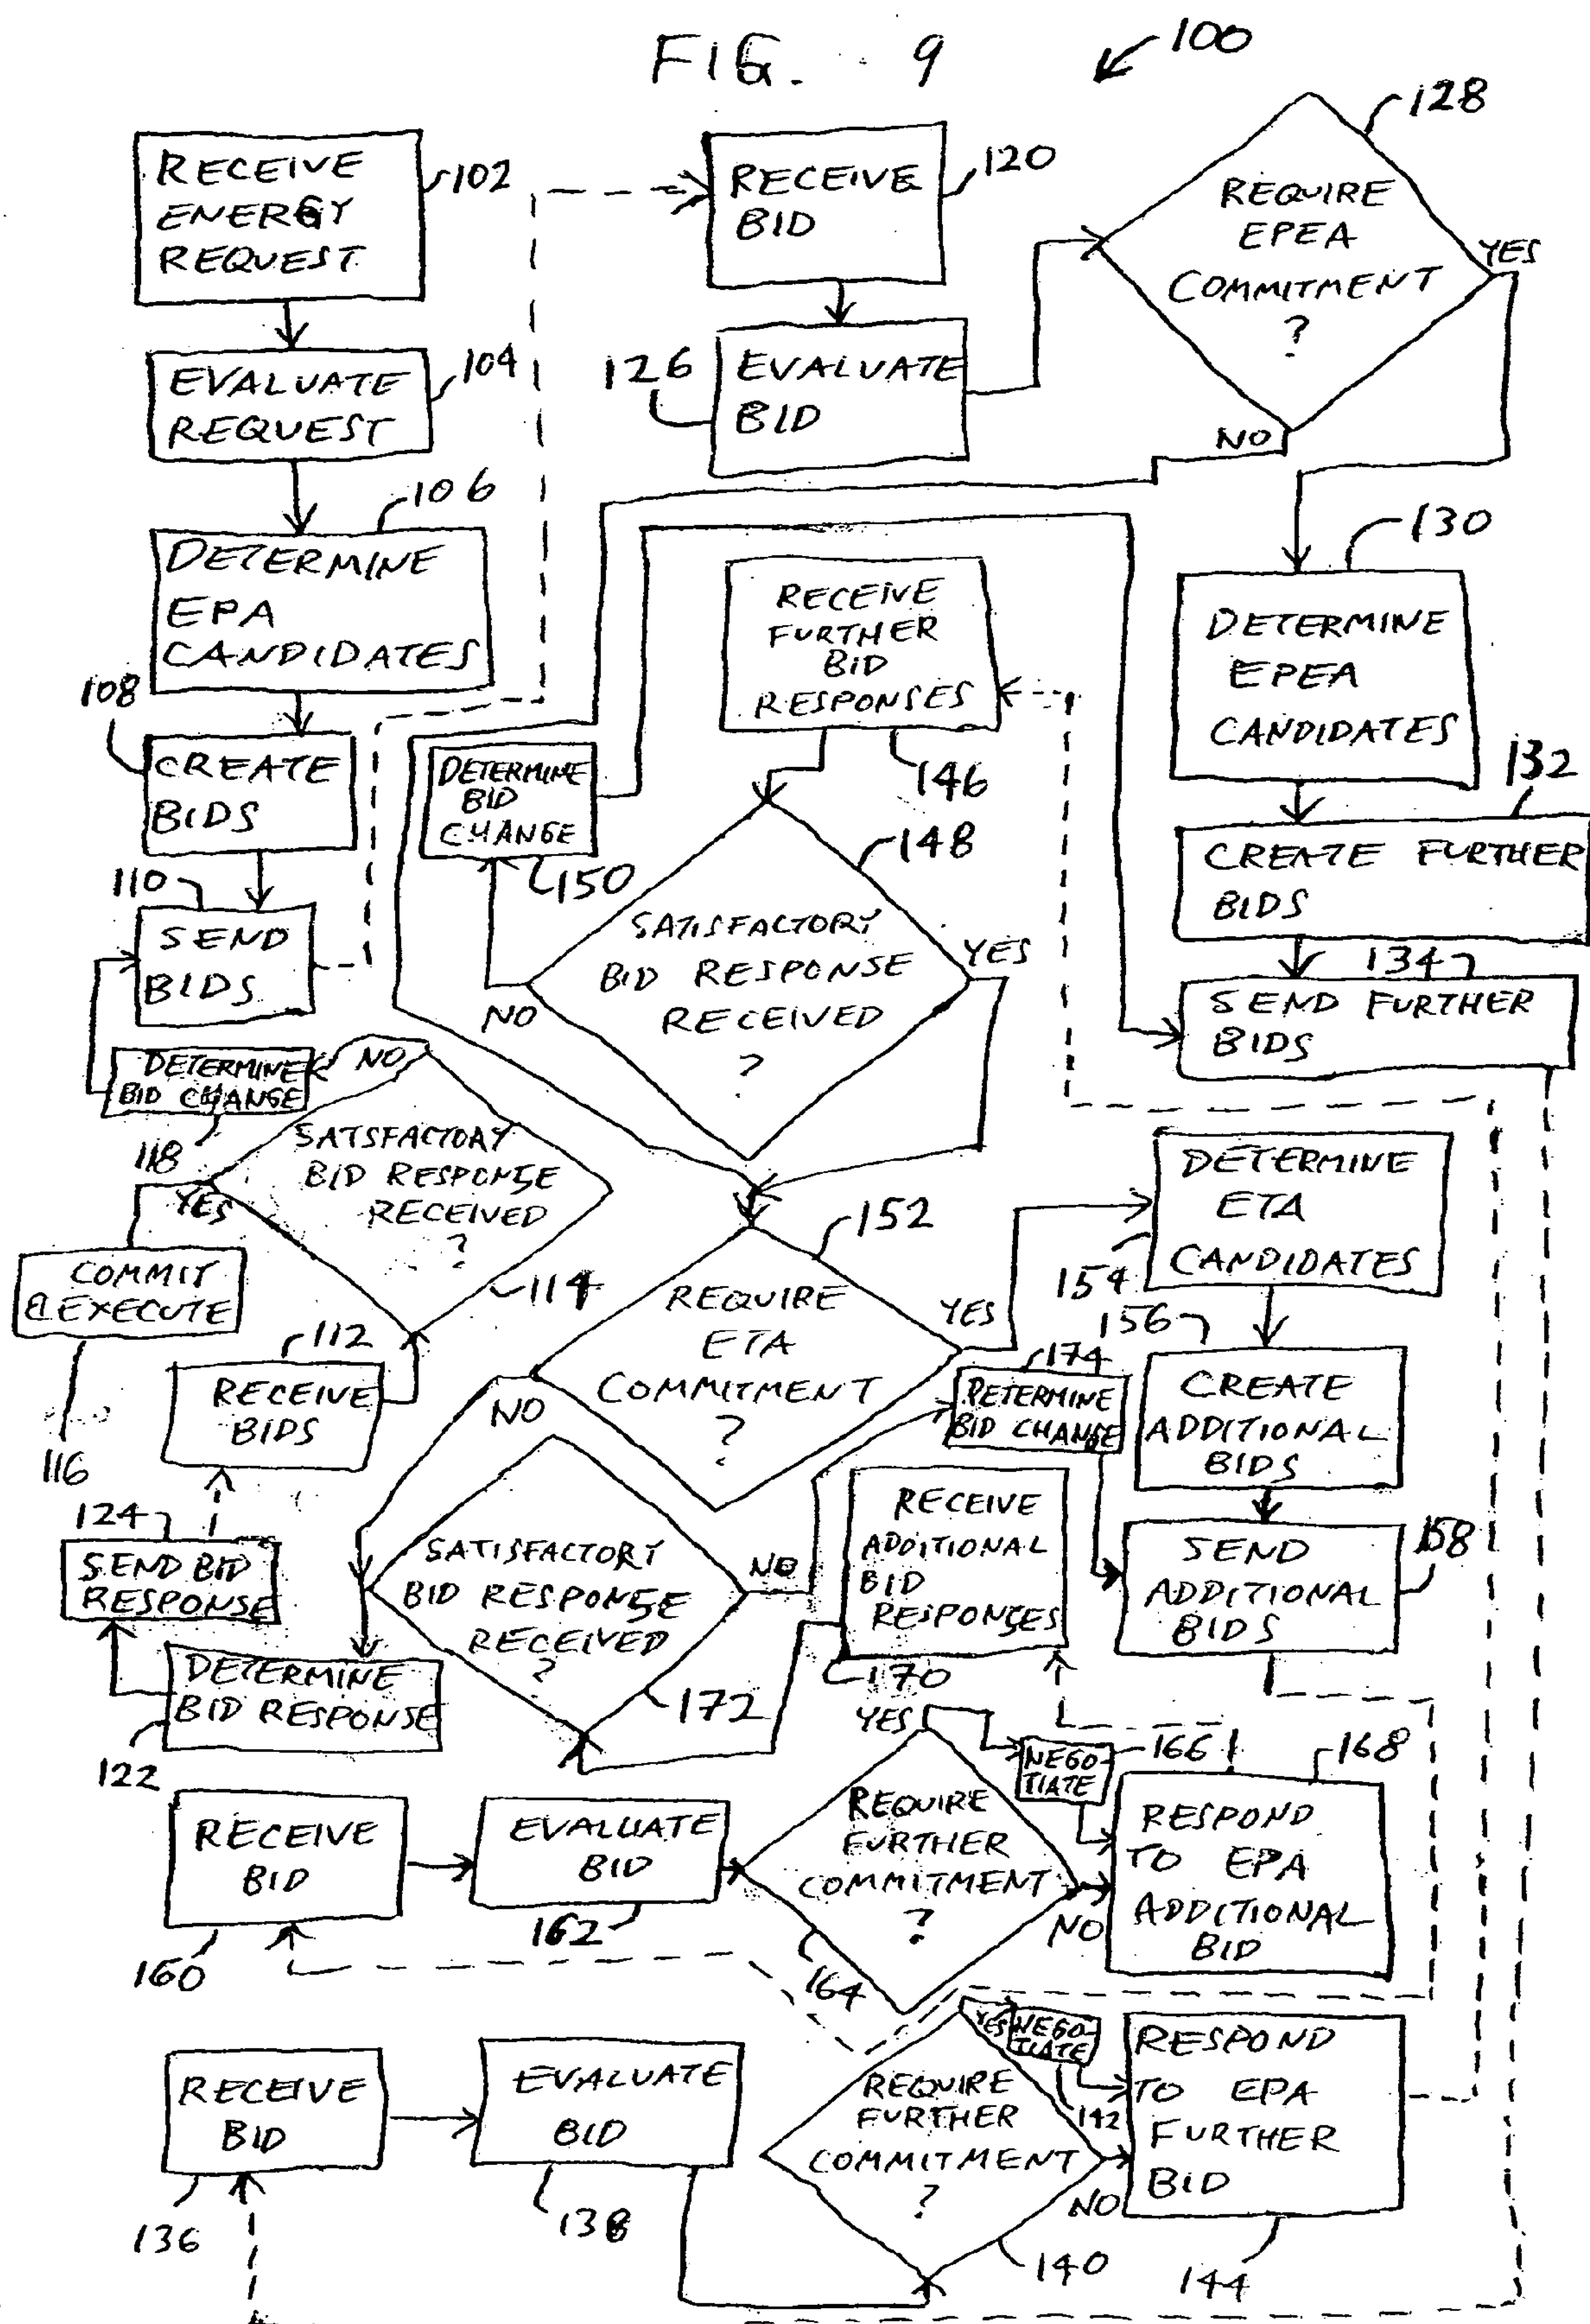 FIG. 9
100
RECEIVE
ENERGY
REQUEST
102
EVALUATE
REQUEST
104
106
DETERMINE
EPA
CANDIDATES
108
CREATE
BIDS
110
SEND
BIDS
DETERMINE
BID CHANGE
118
NO
SATISFACTORY
BID RESPONSE
RECEIVED
?
YES
114
COMMIT
& EXECUTE
116
112
RECEIVE
BIDS
124
SEND BID
RESPONSE
DETERMINE
BID RESPONSE
122
RECEIVE
BID
120
126
EVALUATE
BID
128
REQUIRE
EPEA
COMMITMENT
?
YES
NO
130
DETERMINE
EPEA
CANDIDATES
132
CREATE FURTHER
BIDS
134
SEND FURTHER
BIDS
RECEIVE
FURTHER
BID
RESPONSES
146
DETERMINE
BID
CHANGE
150
148
SATISFACTORY
BID RESPONSE
RECEIVED
?
YES
NO
152
REQUIRE
ETA
COMMITMENT
?
YES
NO
DETERMINE
ETA
CANDIDATES
154
156
CREATE
ADDITIONAL
BIDS
174
DETERMINE
BID CHANGE
SEND
ADDITIONAL
BIDS
158
RECEIVE
ADDITIONAL
BID
RESPONSES
170
SATISFACTORY
BID RESPONSE
RECEIVED
?
NO
172
RECEIVE
BID
160
EVALUATE
BID
162
YES
REQUIRE
FURTHER
COMMITMENT
?
NO
164
NEGO-
TIATE
166
168
RESPOND
TO EPA
ADDITIONAL
BID
RECEIVE
BID
136
EVALUATE
BID
138
YES
REQUIRE
FURTHER
COMMITMENT
?
NO
140
NEGO-
TIATE
142
RESPOND
TO EPA
FURTHER
BID
144